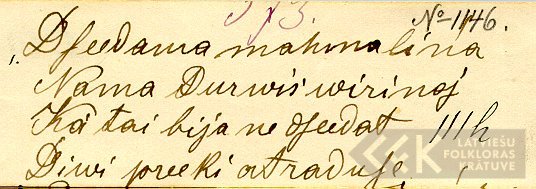 573 № 1146.
1. Dseedama mahmalina
Nama Durwis wirinaj
Ka tai bija ne dseedat 111h
Diwi preeki atraduse
LATVIEŠU
FOLKLORAS
KRĀTUVE